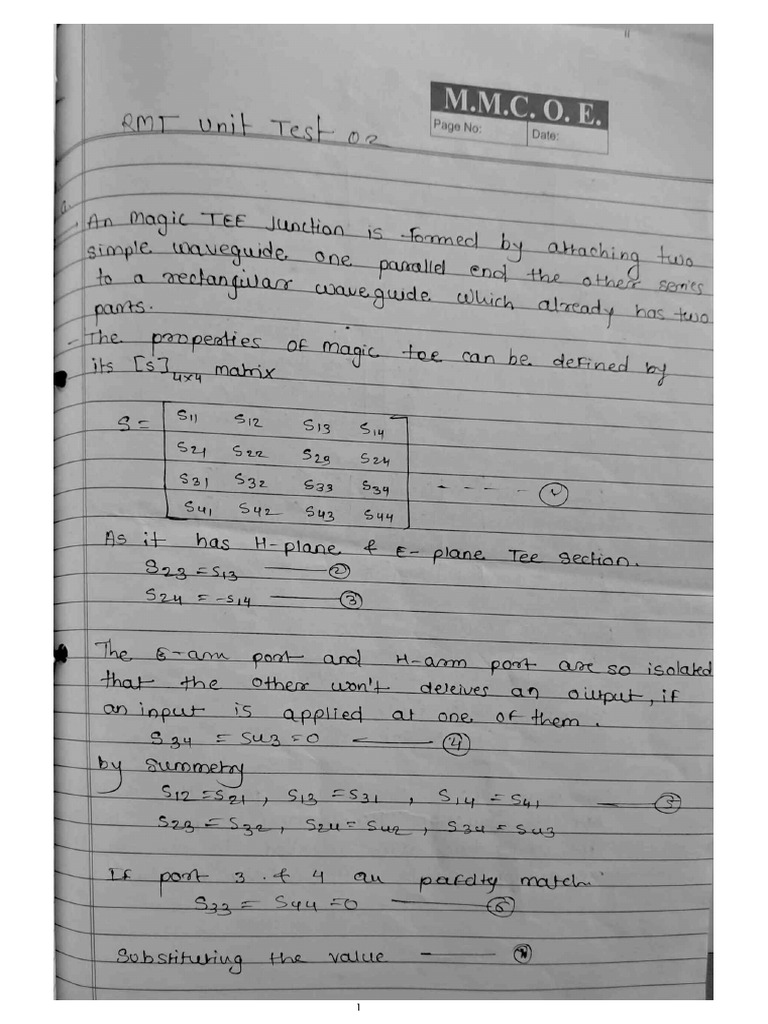 M.M.C. O. E.
Page No:
Date:
RMT Unit Test 02
a.
An Magic TEE Junction is formed by attaching two
simple waveguide one parallel end the other series
to a rectangular waveguide which already has two
parts.
- The properties of magic tee can be defined by
its [S]4x4 matrix
S = S11 S12 S13 S14
S21 S22 S23 S24
S31 S32 S33 S34
S41 S42 S43 S44 - - - - - ①
As it has H-plane & E-plane Tee section.
S23 = S13 ——— ②
S24 = -S14 ——— ③
The E-arm port and H-arm port are so isolated
that the other won't deleives an output, if
an input is applied at one of them.
S34 = S43 = 0 ——— ④
by summetry
S12 = S21 , S13 = S31 , S14 = S41 ——— ⑤
S23 = S32 , S24 = S42 , S34 = S43
If port 3 & 4 match.
S33 = S44 = 0 ——— ⑥
Substituting the value ———
1